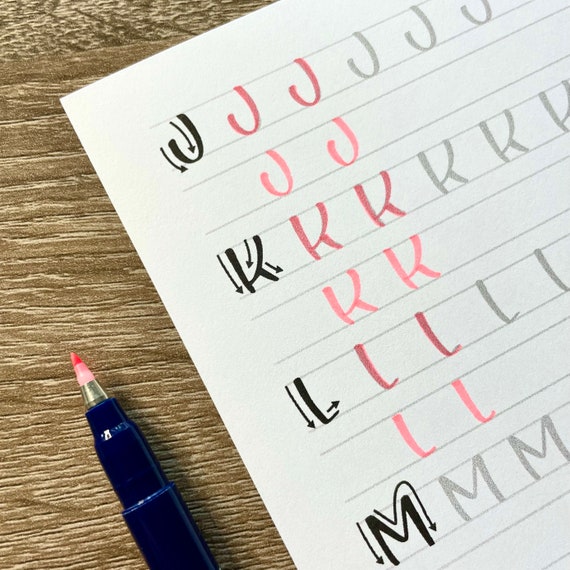 J J J J J J
J J
K K K K K K
K K
L L L L L
L L
M M M